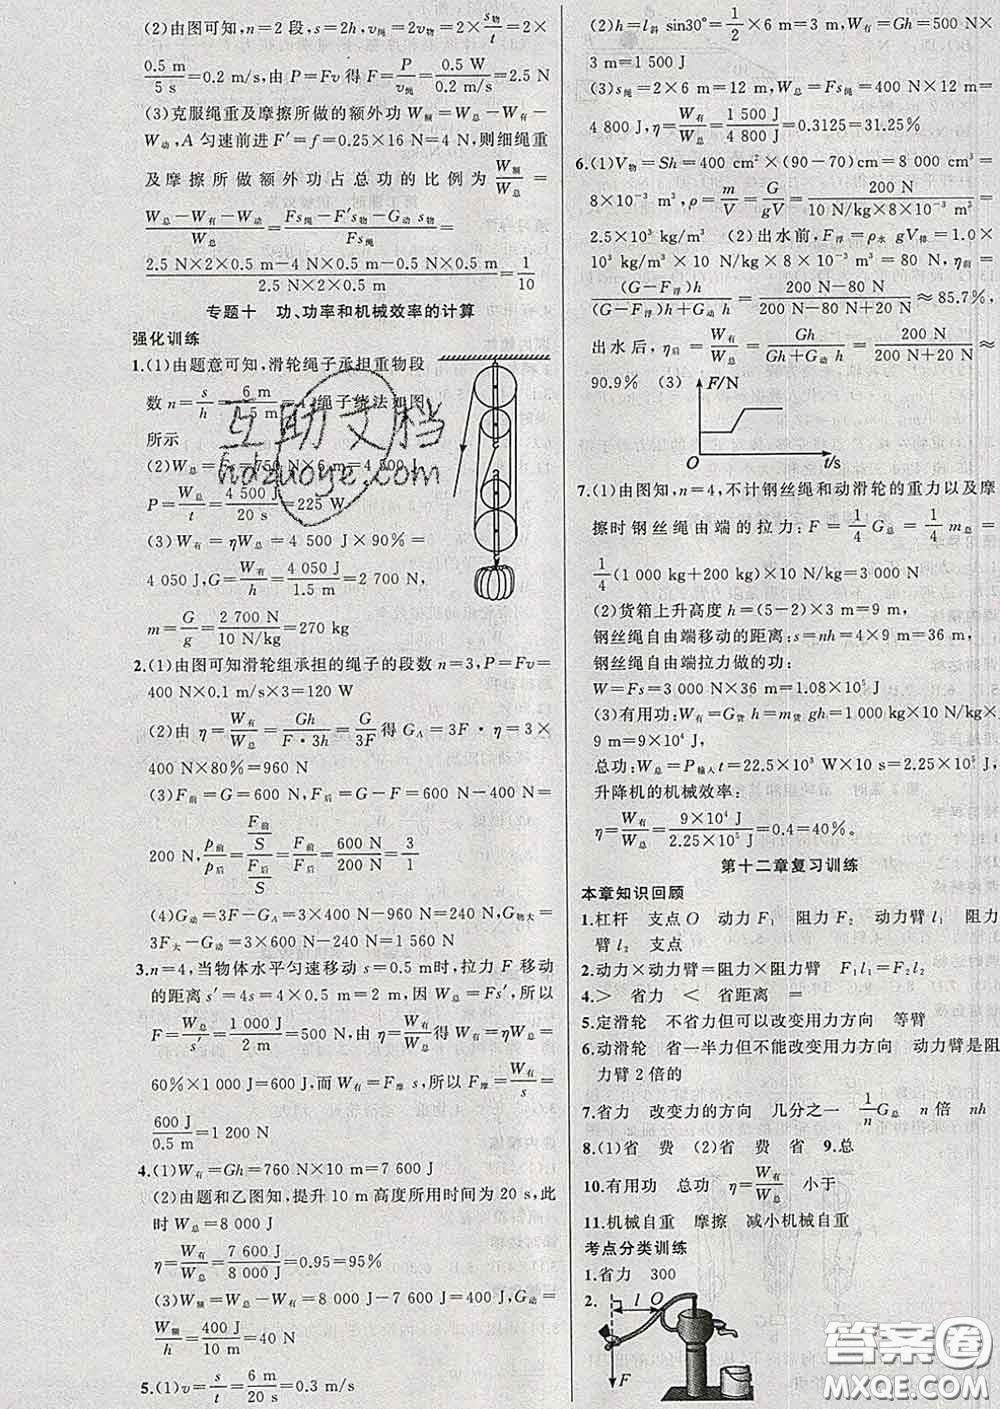 (2)由图可知,n=2段,s=2h,v绳=2v物=2×s物/t=2×
0.5 m/5 s=0.2 m/s,由P=Fv得F=P/v绳=0.5 W/0.2 m/s=2.5 N
(3)克服绳重及摩擦所做的额外功W额=W总-W有-
W动,A匀速前进F′=f=0.25×16 N=4 N,则细绳重
及摩擦所做额外功占总功的比例为W额/W总=
(W总-W有-W动)/W总=(Fs绳-F′s物-G动s物)/Fs绳=
(2.5 N×2×0.5 m-4 N×0.5 m-2 N×0.5 m)/(2.5 N×2×0.5 m)=1/10
专题十 功、功率和机械效率的计算
强化训练
1.(1)由题意可知,滑轮绳子承担重物段
数n=s/h=6 m/1.5 m=4,绳子绕法如图
所示
(2)W总=Fs=750 N×6 m=4 500 J
P=W总/t=4 500 J/20 s=225 W
(3)W有=ηW总=4 500 J×90%=
4 050 J,G=W有/h=4 050 J/1.5 m=2 700 N,
m=G/g=2 700 N/10 N/kg=270 kg
2.(1)由图可知滑轮组承担的绳子的段数n=3,P=Fv=
400 N×0.1 m/s×3=120 W
(2)由η=W有/W总=Gh/F·3h=G/3F得GA=3F·η=3×
400 N×80%=960 N
(3)F前=G=600 N,F后=G-F=600 N-400 N=
200 N,p前/p后=(F前/S)/(F后/S)=F前/F后=600 N/200 N=3/1
(4)G动=3F-GA=3×400 N-960 N=240 N,G物大=
3F大-G动=3×600 N-240 N=1 560 N
3.n=4,当物体水平匀速移动s=0.5 m时,拉力F移动
的距离s′=4s=4×0.5 m=2 m,因W总=Fs′,所以
F=W总/s′=1 000 J/2 m=500 N,由η=W有/W总得W有=ηW总=
60%×1 000 J=600 J,而W有=F摩s,所以F摩=W有/s=
600 J/0.5 m=1 200 N
4.(1)W有=Gh=760 N×10 m=7 600 J
(2)由题和乙图知,提升10 m高度所用时间为20 s,此
时W总=8 000 J
η=W有/W总=7 600 J/8 000 J=0.95=95%
(3)W额=W总-W有=8 000 J-7 600 J=400 J,G动=
W额/h=400 J/10 m=40 N
5.(1)v=s/t=6 m/20 s=0.3 m/s
(2)h=l斜 sin30°=1/2×6 m=3 m,W有=Gh=500 N×
3 m=1 500 J
(3)s绳=2×6 m=12 m,W总=Fs绳=400 N×12 m=
4 800 J,η=W有/W总=1 500 J/4 800 J=0.3125=31.25%
6.(1)V物=Sh=400 cm²×(90-70)cm=8 000 cm³=
8×10⁻³ m³,ρ=m/V=G/gV=200 N/(10 N/kg×8×10⁻³ m³)=
2.5×10³ kg/m³ (2)出水前,F浮=ρ水gV排=1.0×
10³ kg/m³×10 N/kg×8×10⁻³ m³=80 N,η前=
(G-F浮)h/((G-F浮)h+G动h)=(200 N-80 N)/(200 N-80 N+20 N)≈85.7%,
出水后,η后=W有/W总=Gh/(Gh+G动h)=200 N/(200 N+20 N)≈
90.9% (3)
F/N
O t/s
7.(1)由图知,n=4,不计钢丝绳和动滑轮的重力以及摩
擦时钢丝绳由端的拉力:F=1/4G总=1/4m总g=
1/4(1 000 kg+200 kg)×10 N/kg=3 000 N
(2)货箱上升高度h=(5-2)×3 m=9 m,
钢丝绳自由端移动的距离:s=nh=4×9 m=36 m,
钢丝绳自由端拉力做的功:
W=Fs=3 000 N×36 m=1.08×10⁵ J
(3)有用功:W有=G货h=m货gh=1 000 kg×10 N/kg×
9 m=9×10⁴ J,
总功:W总=P输入t=22.5×10³ W×10 s=2.25×10⁵ J,
升降机的机械效率:
η=W有/W总=9×10⁴ J/2.25×10⁵ J=0.4=40%。
第十二章复习训练
本章知识回顾
1.杠杆 支点O 动力F₁ 阻力F₂ 动力臂l₁ 阻力
臂l₂ 支点
2.动力×动力臂=阻力×阻力臂 F₁l₁=F₂l₂
4.> 省力 < 省距离 =
5.定滑轮 不省力但可以改变用力方向 等臂
6.动滑轮 省一半力但不能改变用力方向 动力臂是阻
力臂2倍的
7.省力 改变力的方向 几分之一 1/n G总 n倍 nh
8.(1)省 费 (2)省 费 省 9.总
10.有用功 总功 η=W有/W总 小于
11.机械自重 摩擦 减小机械自重
考点分类训练
1.省力 300
2.
l O
F
互助文档
hdzuoye.com
答案圈
MXQE.COM